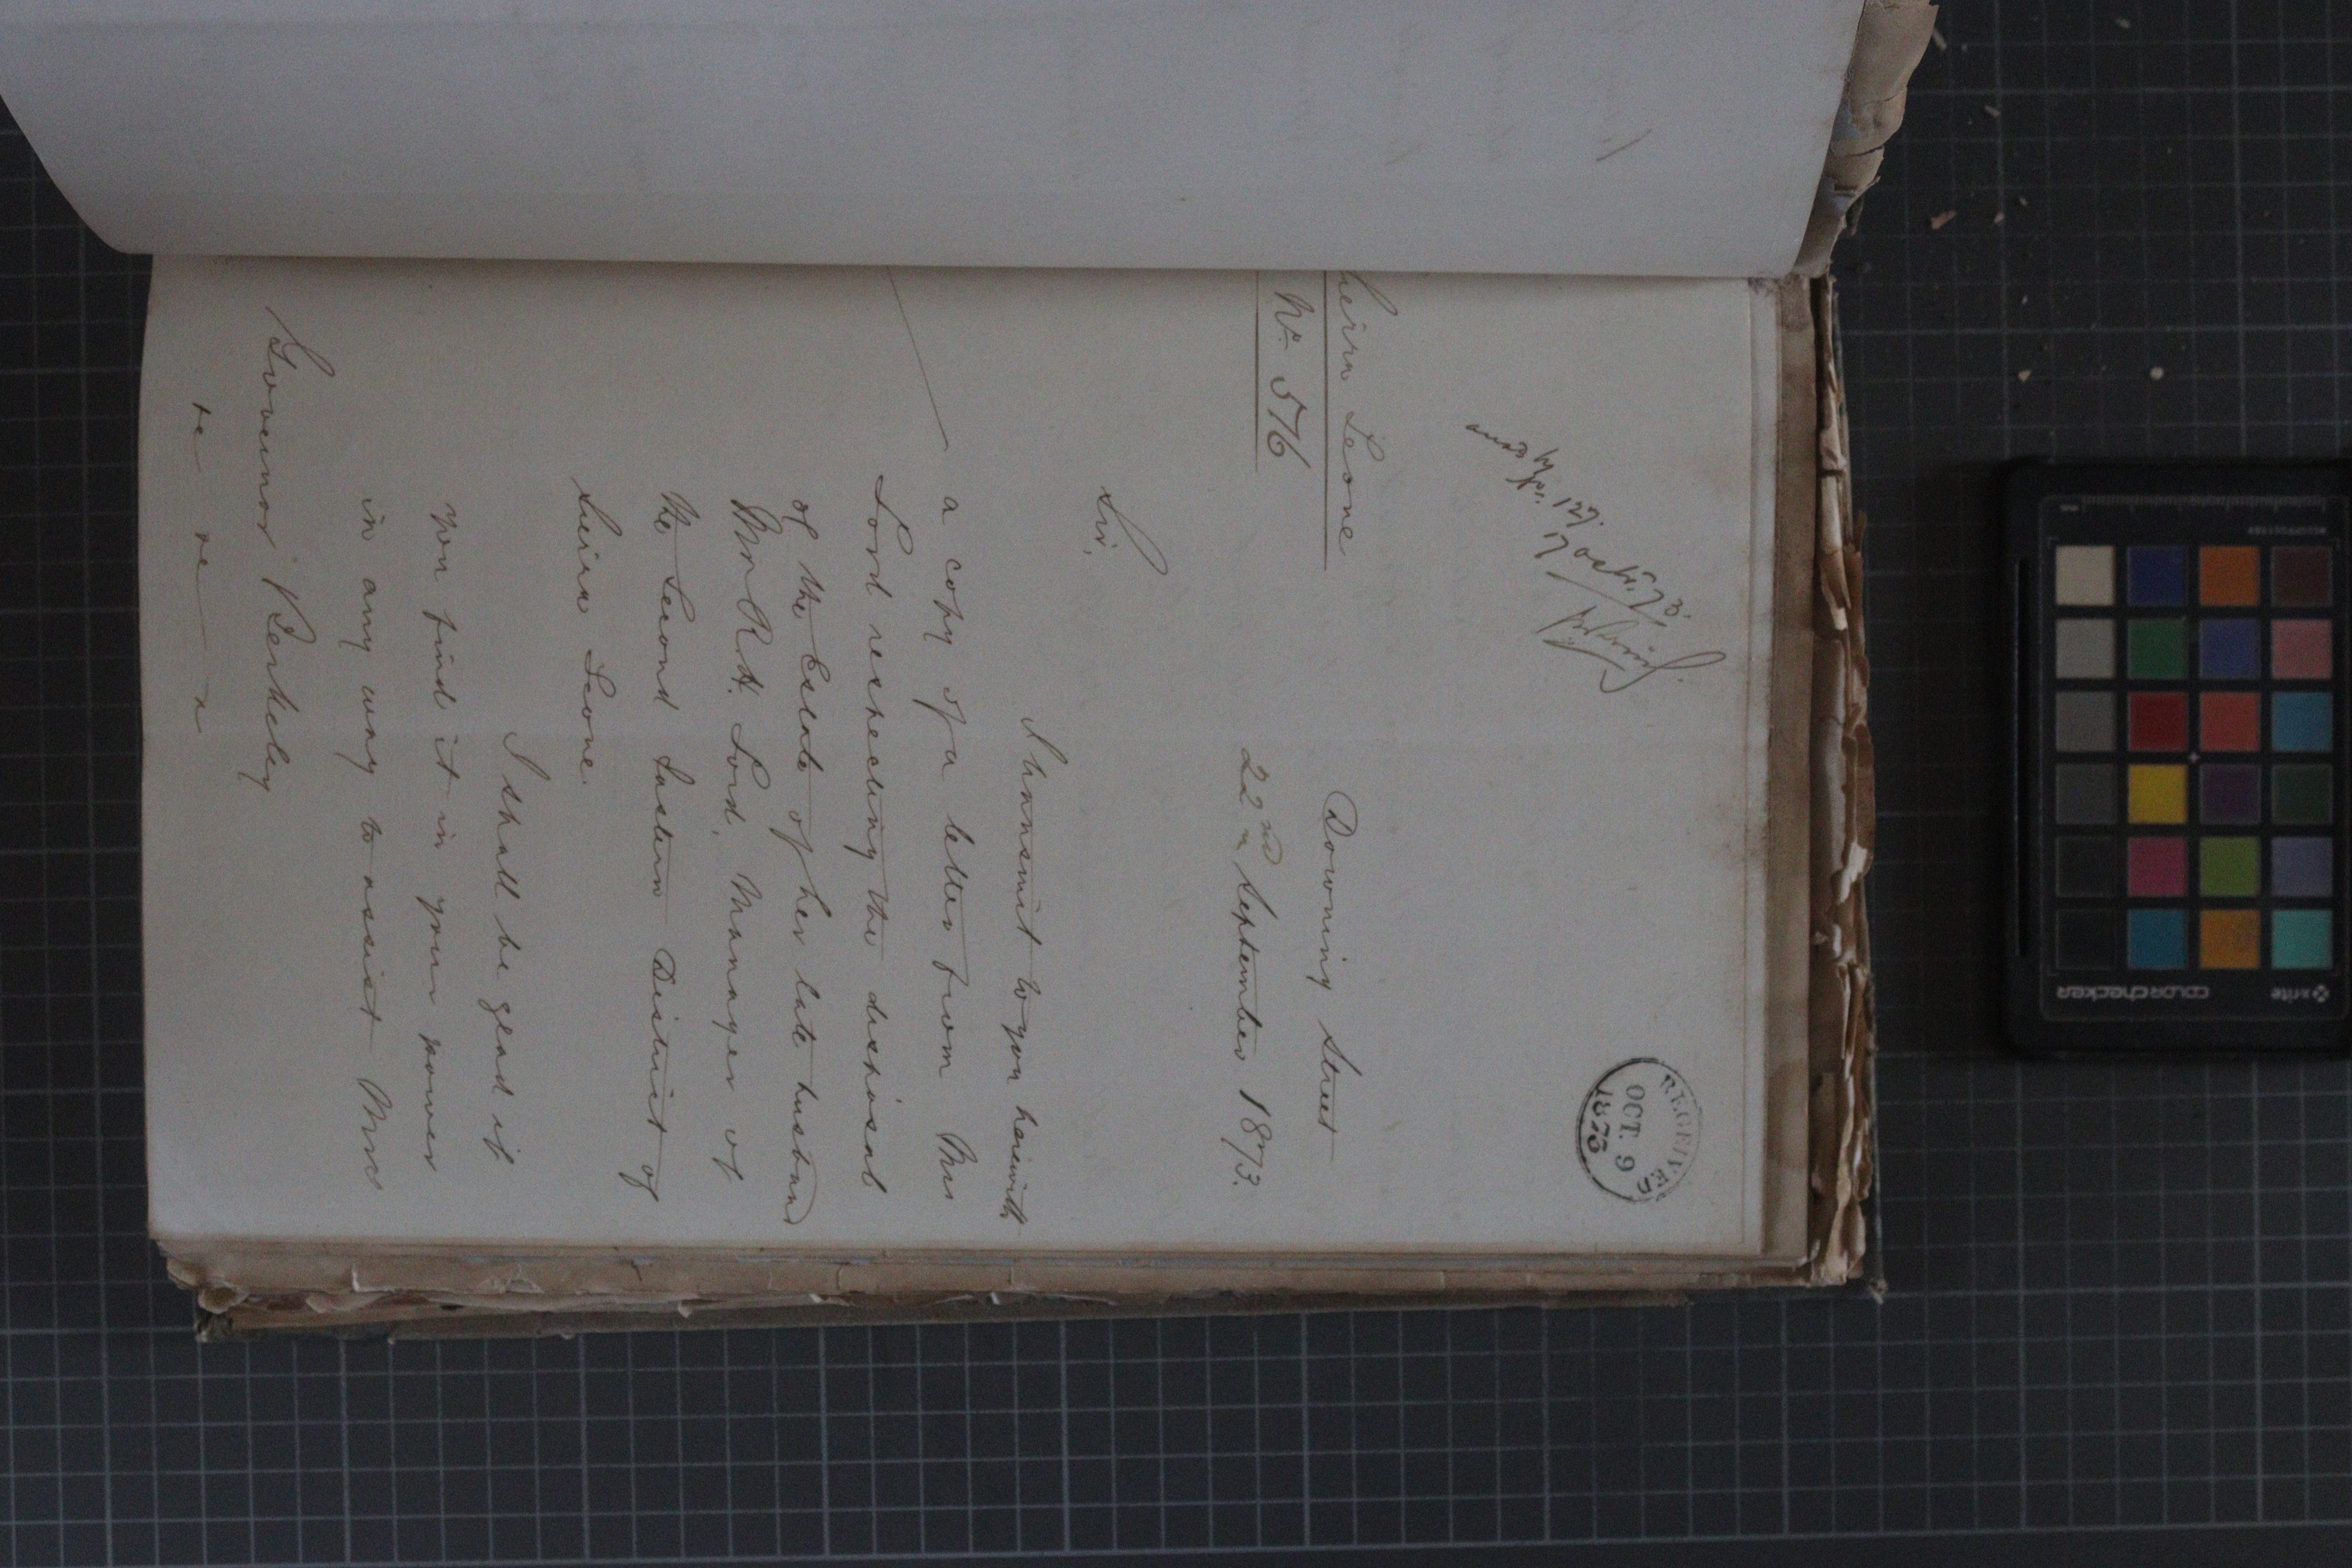 RECEIVED
OCT. 9
1873
Sierra Leone
No. 576
Downing Street
22nd September 1873.
Sir,
I transmit to you herewith
a copy of a letter from Mrs
Lord respecting the disposal
of the Estate of her late husband
Mr R. A. Lord, Manager of
the Second Eastern District of
Sierra Leone.
I shall be glad if
you find it in your power
in any way to assist Mrs
Governor Berkeley